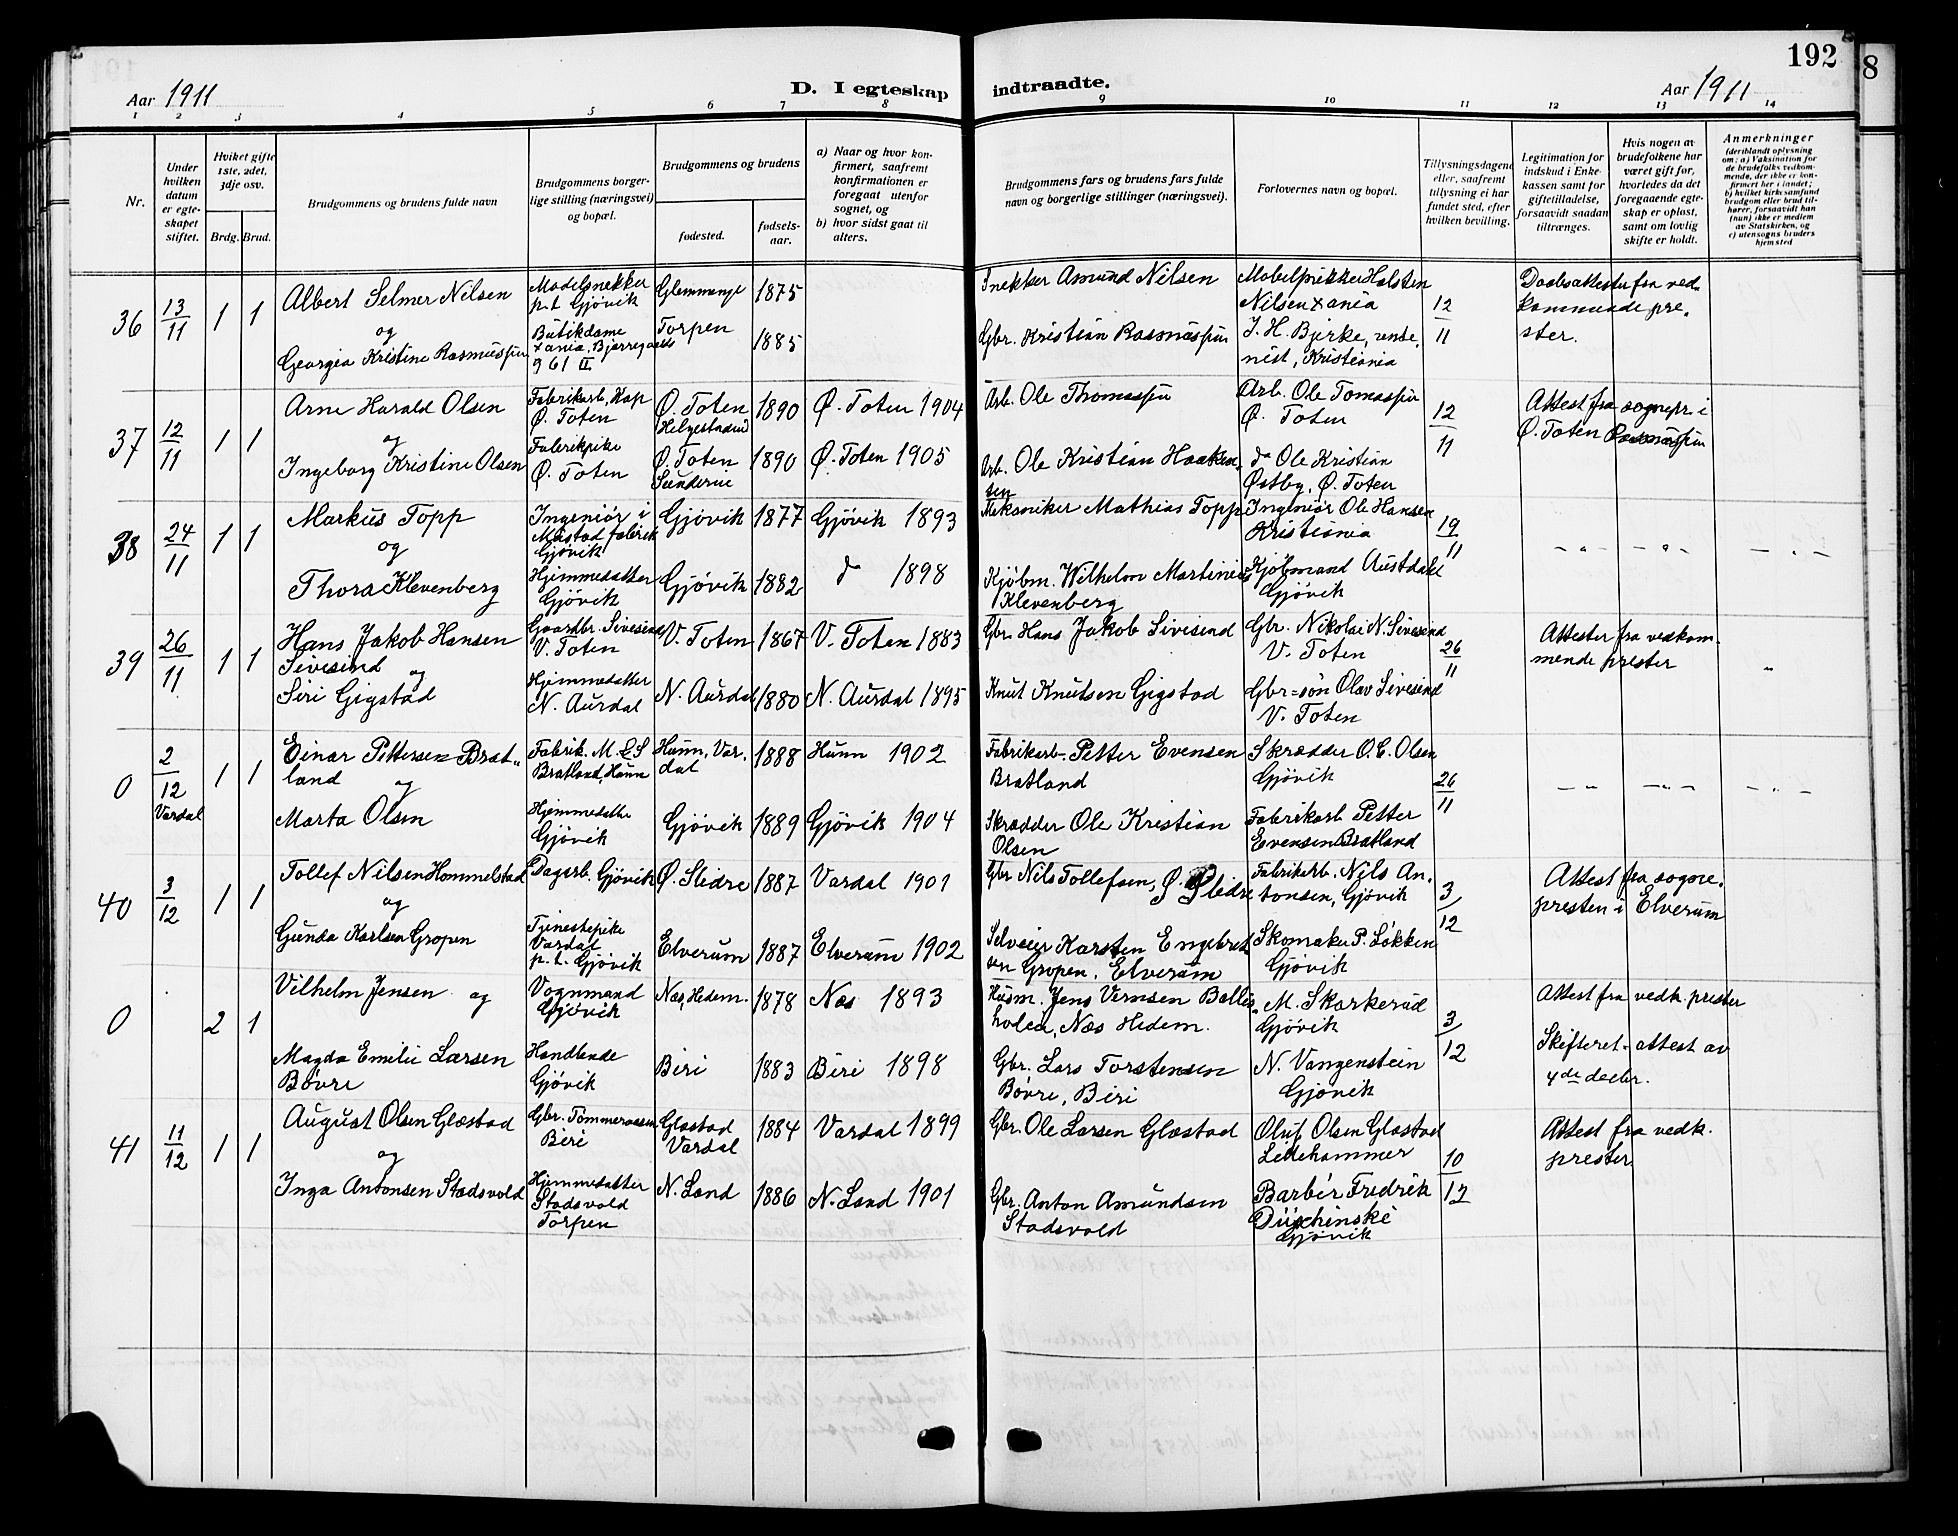 192
8
Aar 1911
D. I egteskap
indtraadte.
Aar 1911
1 2 3 4 5 6 7 8 9 10 11 12 13 14
Nr.
Under hvilken datum er egteskapet stiftet.
Hviket gifte 1ste, 2det, 3dje osv.
Brdg. Brud.
Brudgommens og brudens fulde navn
Brudgommens borgerlige stilling (næringsvei) og bopæl.
Brudgommens og brudens
fødested.
fødselsaar.
a) Naar og hvor konfirmert, saafremt konfirmationen er foregaat utenfor sognet, og
b) hvor sidst gaat til alters.
Brudgommens fars og brudens fars fulde navn og borgerlige stillinger (næringsvei).
Forlovernes navn og bopæl.
Tillysningsdagene eller, saafremt tillysning ei har fundet sted, efter hvilken bevilling.
Legitimation for indskud i Enkekassen samt for giftetilladelse, forsaavidt saadan tiltrænges.
Hvis nogen av brudefolkene har været gift før, hvorledes da det foregaaende egteskap er opløst, samt om lovlig skifte er holdt.
Anmerkninger
(deriblandt oplysning om: a) Vaksination for de brudefolks vedkommende, der ikke er konfirmert her i landet; b) hvilket kirksamfund brudgom eller brud tilhører, forsaavidt han (hun) ikke er medlem av Statskirken, og c) utensogns bruders hjemsted
36 13/11 1 1
Albert Selmer Nilsen
og
Georgia Kristine Rasmussen
Modelsnekker
p.t. Gjövik
Butikdame
Xania, Bjerregaards
g 61 II
Glemmenge 1875
Torpen 1885
Snekker Amund Nilsen
Gbr. Kristian Rasmussen
Nilsen Xania
J. H. Bjerke, rentenist, Kristiania
12/11
Daabsattester fra vedkommende prester.
37 12/11 1 1
Arne Harald Olsen
og
Ingeborg Kristine Olsen
Fabrikarb, Kap
Ø. Toten
Fabrikpike
Ø. Toten
Ø. Toten 1890 Ø. Toten 1904
Ø. Toten 1890 Ø. Toten 1905
Arb. Ole Thomassen
Arb. Ole Kristian Haakensen
Arb. Ole Tomassen
Ø. Toten
do Ole Kristian
Østby, Ø. Toten
12/11
Attest fra sognepr. i
Ø. Toten Rasmussen
38 24/11 1 1
Markus Topp
og
Thora Klevenberg
Ingeniör i
Mustad fabrik
Gjövik
Hjemmedatter
Gjövik
Gjövik 1877 Gjövik 1893
Gjövik 1882 do 1898
Mekaniker Mathias Topp
Kjöbm. Wilhelm Martinius
Klevenberg
Ingeniör Ole Hansen
Kristiania
Kjöbmand Austdahl
Gjövik
19/11
- " - - " - - " -
39 26/11 1 1
Hans Jakob Hansen
Sivesind
og
Siri Gigstad
Gaardbr. Sivesind
V. Toten
Hjemmedatter
N. Aurdal
V. Toten 1867 V. Toten 1883
N. Aurdal 1880 N. Aurdal 1895
Gbr. Hans Jakob Sivesind
Knut Knutsen Gigstad
Gbr. Nikolai N. Sivesind
V. Toten
Gbr=sön Olav Sivesind
V. Toten
26/11
Attester fra vedkommende prester
"
0 2/12 Vardal 1 1
Einar Pettersen Bratland
og
Marta Olsen
Fabrik. M. & S
Bratland, Hunn
Hjemmedatter
Gjövik
Hunn, Vardal 1888 Hunn 1902
Gjövik 1889 Gjövik 1904
Fabrikarb. Petter Evensen
Bratland
Skrædder Ole Kristian
Olsen
Skrædder O. C. Olsen
Gjövik
Fabrikarb Petter
Evensen Bratland
26/11
- " - - " - - " -
40 3/12 1 1
Tollef Nilsen Hommelstad
og
Gunda Karlsen Gropen
Dagarb. Gjövik
Tjenestepike
Vardal
p.t. Gjövik
Ø. Slidre 1887 Vardal 1901
Elverum 1887 Elverum 1902
Gbr Nils Tollefsen, Ø. Slidre
Selveier Karsten Engebretsen Gropen, Elverum
Fabrikarb. Nils Antonsen, Gjövik
Skomaker P. Løkken
Gjövik
3/12
Attest fra sognepresten i Elverum
0 2 1
Vilhelm Jensen og
Magda Emilie Larsen
Bövre
Vognmand
Gjövik
Handlende
Gjövik
Næs, Hedem. 1878 Næs 1893
Biri 1883 Biri 1898
Husm. Jens Vernsen, Næs Hedem.
Gbr. Lars Torstensen
Bøvre, Biri
M. Skarkerud
Gjövik
N. Vangenstein
Gjövik
3/12
Attest fra vedk. prester
Skifteret. attest av
4de decbr.
41 11/12 1 1
August Olsen Glæstad
og
Inga Antonsen Stadsvold
Gbr. Tømmeraasen
Biri
Hjemmedatter
Stadsvold
Torpen
Glæstad
Vardal 1884 Vardal 1899
N. Land 1886 N. Land 1901
Gbr. Ole Larsen Glæstad
Gbr. Anton Amundsen
Stadsvold
Oluf Olsen Glæstad
Lillehammer
Barbér Fredrik
Gjövik
10/12
Attest fra vedk.
prester